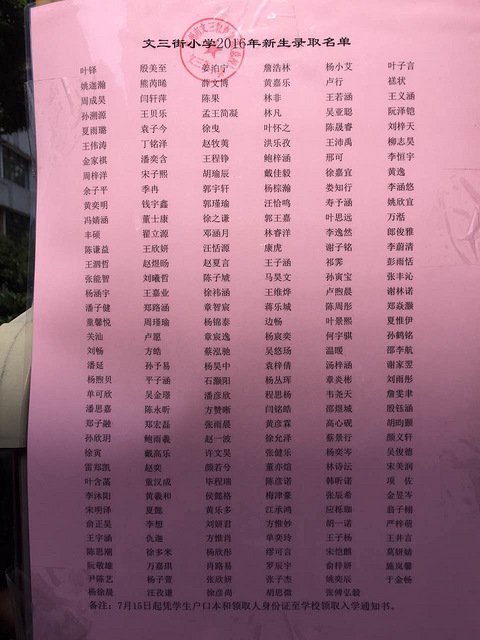 文三街小学2016年新生录取名单
叶铎 殷美至 姜拍宇 詹浩林 杨小艾 叶子言
姚迦瀚 熊芮晞 薛文博 黄嘉乐 卢行 禚状
周成昊 闫轩萍 陈果 林非 王若涵 王义涵
孙溯源 王贝乐 孟王简凝 林凡 吴亚聪 阮泽铠
夏雨璐 袁子今 徐曳 叶怀之 陈晟睿 刘梓天
王伟涛 丁铭泽 赵牧荑 洪乐孜 王沛禹 柳志昊
金家祺 潘奕含 王程铮 鲍梓涵 邢可 李恒宇
周梓洋 宋子熙 胡瑜辰 戴佳毅 徐嘉宜 黄逸
余子平 季冉 郭宇轩 杨棕瀚 娄知行 李涵悠
黄奕明 钱宇鑫 郭瑾瑜 汪恰鸣 寿予涵 姚欣宜
冯婧涵 董士康 徐之谦 郭王嘉 叶思远 万湉
丰硕 翟立源 邓涵月 林睿洋 李逸然 郎俊雅
陈谦益 王欣妍 汪恬源 康虎 谢子铭 李蔚清
王泗哲 赵煜旸 赵夏言 王子涵 祁霁 彭雨恬
张能智 刘曦哲 陈子虓 马昊文 孙寅宝 张丰沁
杨涵宇 王嘉业 徐祎涵 王维烨 卢煦晨 谢林诺
潘子健 郑路涵 章智宸 蒋乐城 陈周彤 郑焱灏
童馨悦 周瑾瑜 杨锦泰 边畅 叶景熙 夏惟伊
关汕 卢愿 章宸逸 杨宸奕 何宇骐 孙鹤铭
刘畅 方皓 蔡泓驰 吴悠场 温暖 邵李航
潘延 孙予易 杨昊中 袁梓倩 汤梓涵 谢家翌
杨煦贝 平子涵 石灏阳 杨丛珲 章炎彬 刘雨彤
单可欣 吴金璟 潘彦欣 程思杨 韦尧天 詹雯聿
潘思嘉 陈永昕 方赞晰 闫铭皓 邵煜城 殷钰涵
郑子融 郑宏磊 张雨晨 黄彦霖 高心砚 胡昀颢
孙欣玥 鲍雨羲 赵一波 徐允泽 蔡景行 颜义轩
徐寅 戴高乐 许文昊 张健乐 杨奕岑 吴俊德
雷郑凯 赵奕 颜若兮 董亦煊 林诗沄 宋美润
叶含菡 董汉成 毕程瑞 陈彦诺 韩昕诺 项佐
李沐阳 黄羲和 侯懿格 梅津豪 张辰希 金昱岑
宋明泽 夏懿 黄乐多 江承鸿 应栎珈 翁子栩
俞正昊 李想 刘妍君 方惟妙 胡一诺 严梓萌
王宇涵 仇迦 方惟肖 单奕玲 王子杨 王井言
陈思潮 徐多米 杨欣彤 缪可言 宋恺麒 莫妍婧
阮敬雄 万嘉琪 肖路易 罗辰宇 俞梓妍 施岚馨
尹陈艺 杨子萱 张欣妍 张子杰 姚奕辰 于金畅
杨徐晨 汪孜谦 徐彦尚 胡思微 张傅弘毅
备注：7月15日起凭学生户口本和领取人身份证至学校领取入学通知书。